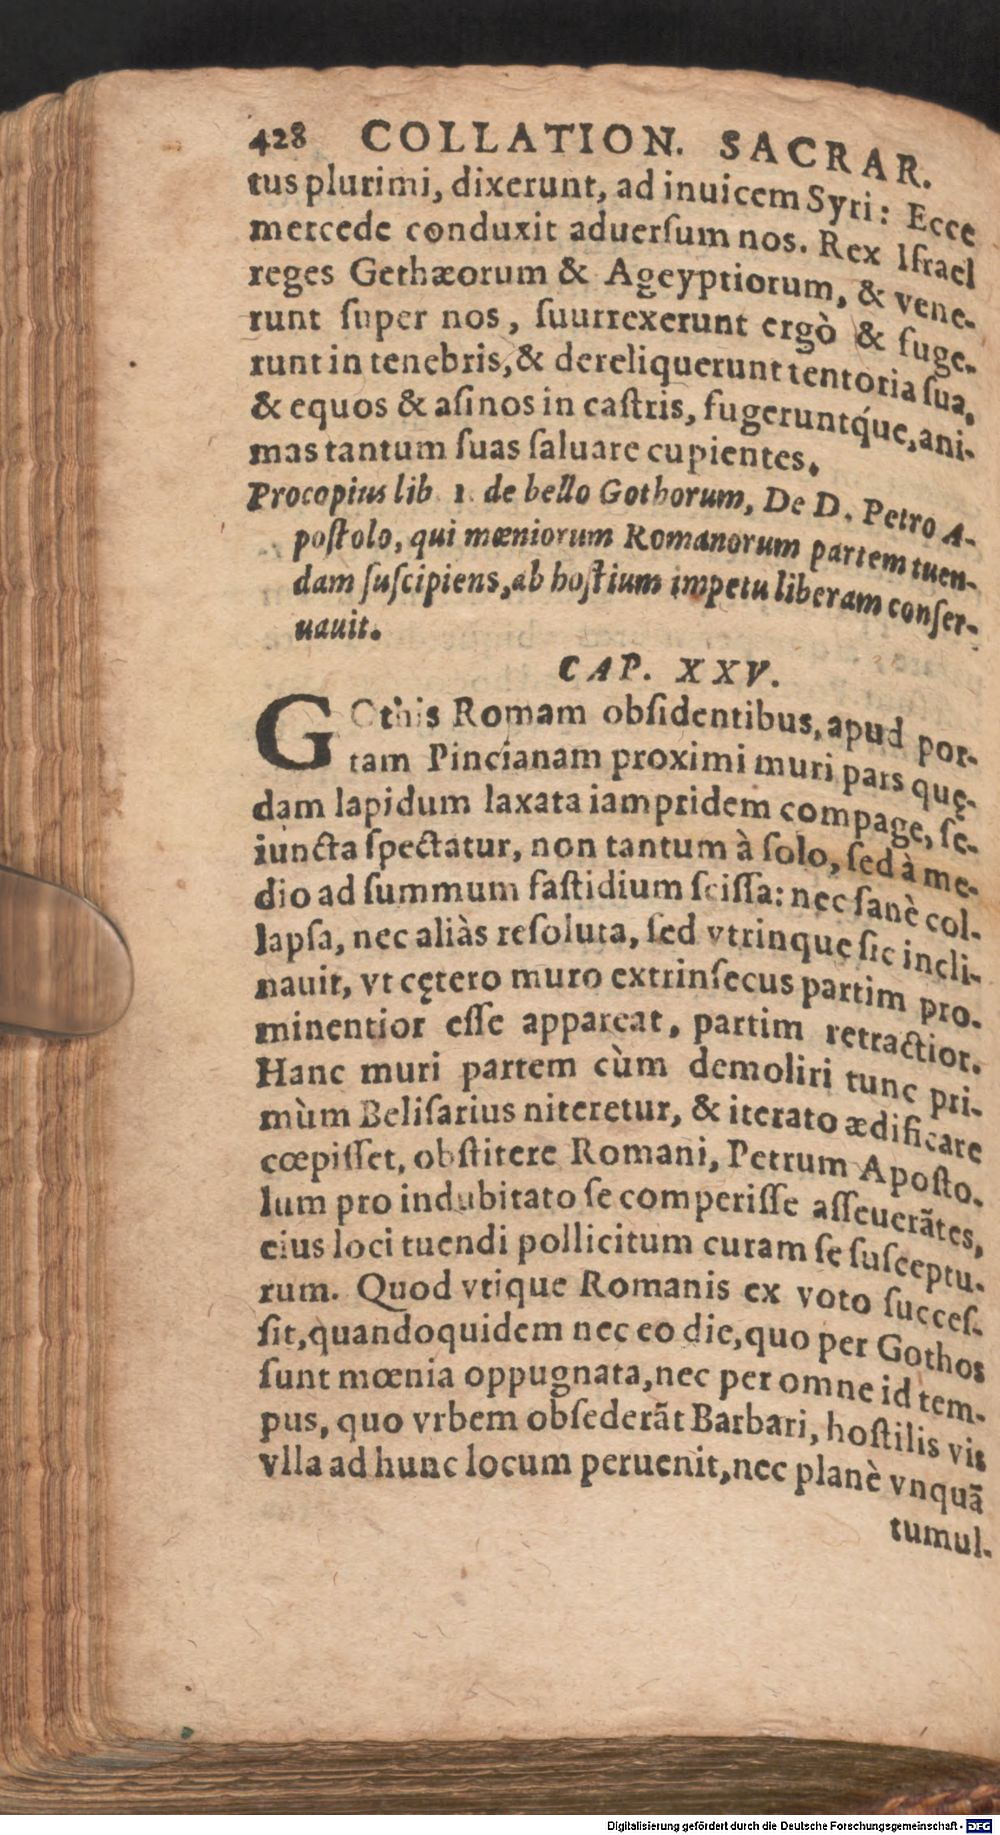 428 COLLATION. SACRAR.
tus plurimi, dixerunt, ad inuicem Syri: Ecce
mercede conduxit aduerſum nos. Rex Iſrael
reges Gethæorum & Ageyptiorum, & vene-
runt ſuper nos, ſuurrexerunt ergò & fuge-
runt in tenebris, & dereliquerunt tentoria ſua,
& equos & aſinos in caſtris, fugeruntq́ue, ani-
mas tantum ſuas ſaluare cupientes.
Procopius lib 1. de bello Gothorum, De D. Petro A-
poſtolo, qui mœniorum Romanorum partem tuen-
dam ſuſcipiens, ab hoſtium impetu liberam conſer-
uauit.
CAP. XXV.
GOthis Romam obſidentibus, apud por-
tam Pincianam proximi muri pars quę-
dam lapidum laxata iampridem compage, ſe-
iuncta ſpectatur, non tantum à ſolo, ſed à me-
dio ad ſummum faſtidium ſciſſa: nec ſanè col-
lapſa, nec aliàs reſoluta, ſed vtrinque ſic incli-
nauit, vt cętero muro extrinſecus partim pro-
minentior eſſe appareat, partim retractior.
Hanc muri partem cùm demoliri tunc pri-
mùm Beliſarius niteretur, & iterato ædificare
cœpiſſet, obſtitere Romani, Petrum Apoſto-
lum pro indubitato ſe comperiſſe aſſeuerãtes,
eius loci tuendi pollicitum curam ſe ſuſceptu-
rum. Quod vtique Romanis ex voto ſucceſ-
ſit, quandoquidem nec eo die, quo per Gothos
ſunt mœnia oppugnata, nec per omne id tem-
pus, quo vrbem obſederãt Barbari, hoſtilis vis
vlla ad hunc locum peruenit, nec planè vnquã
tumul-
Digitalisierung gefördert durch die Deutsche Forschungsgemeinschaft - DFG